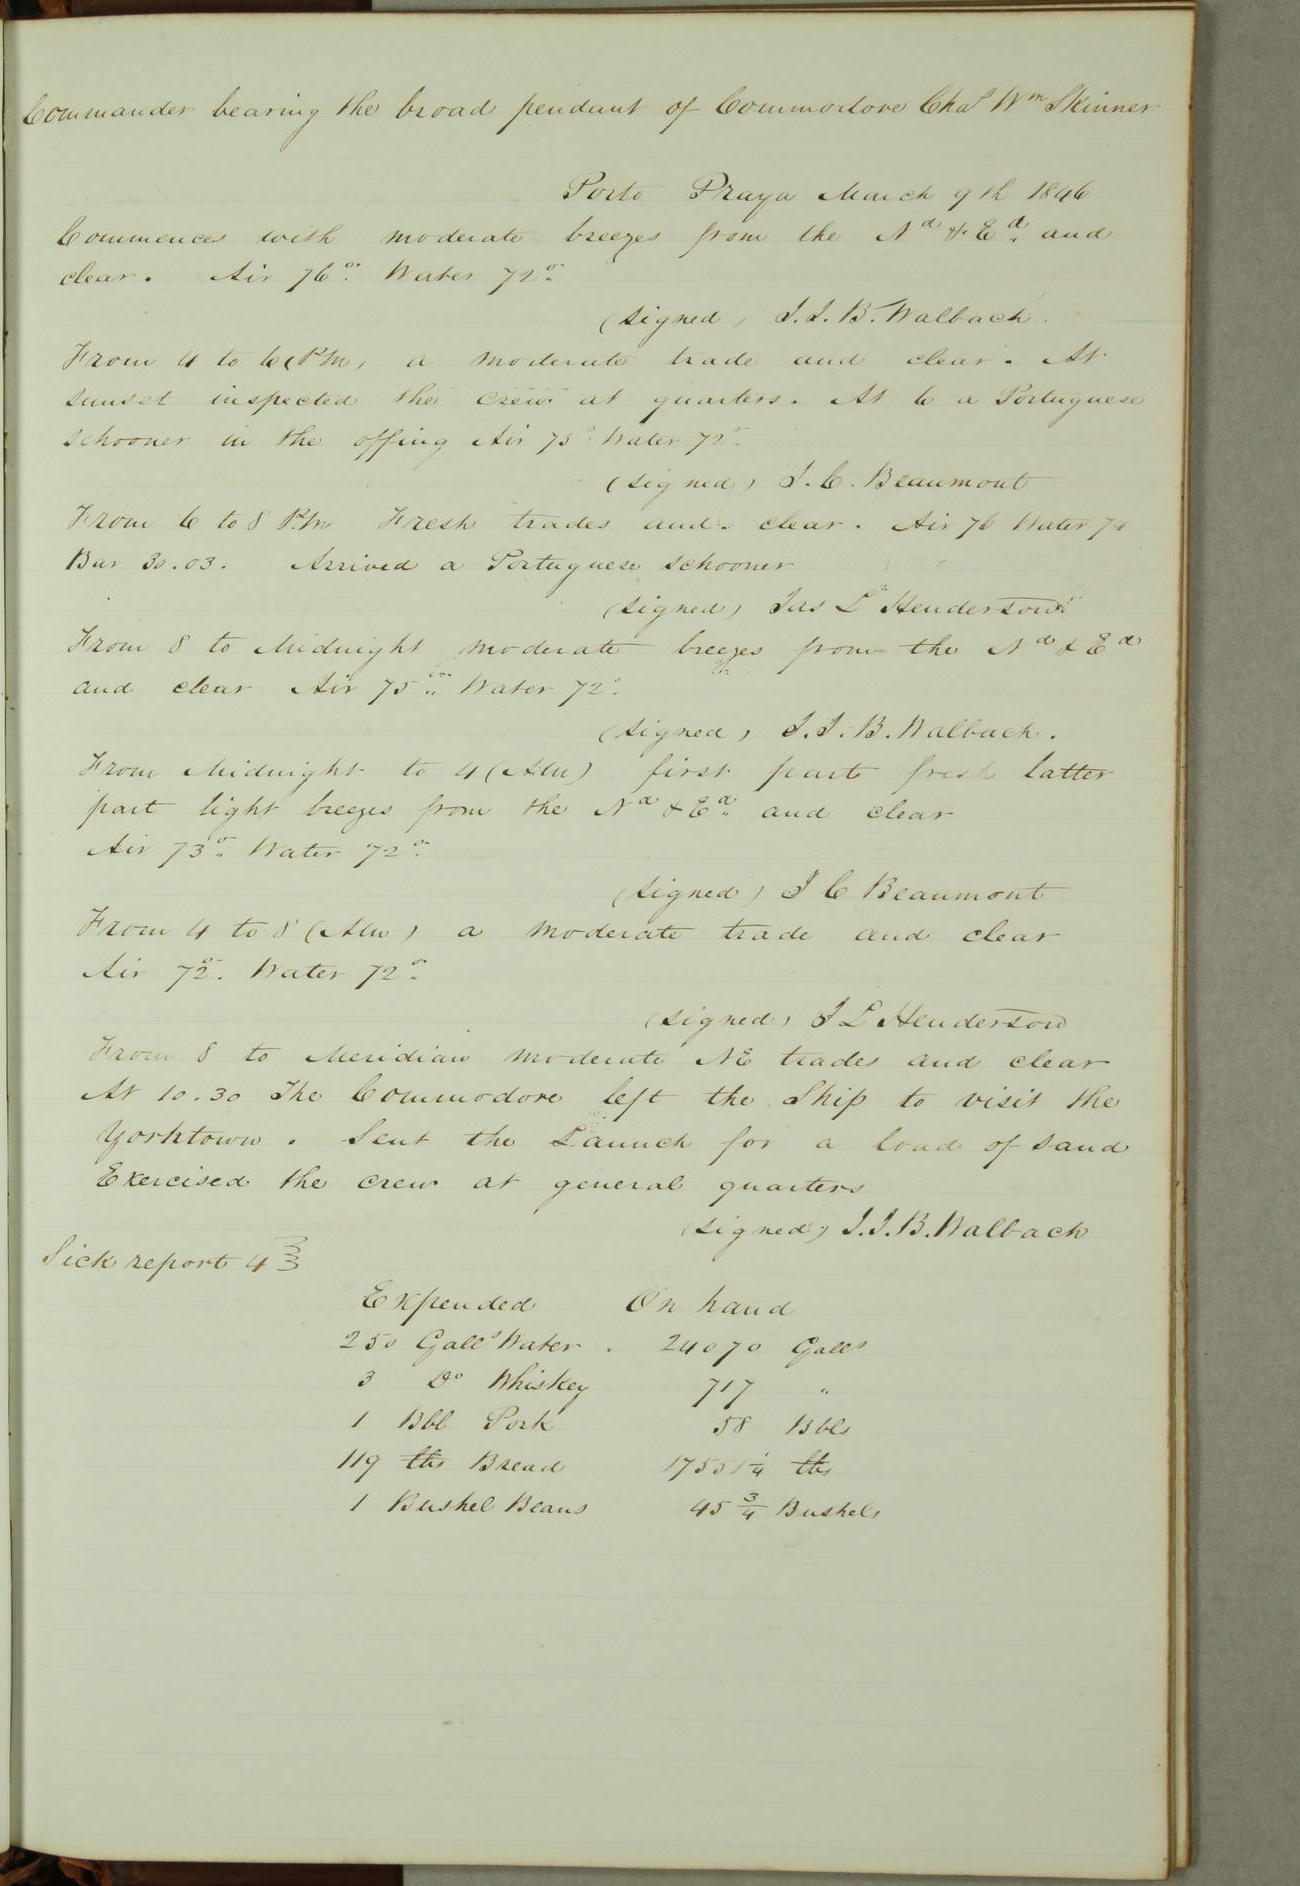 Commander bearing the broad pendant of Commodore Chas Wm Skinner
Porto Praya March 9th 1846
Commences with moderate breezes from the Nd & Ed. and
clear. Air 76° Water 72°
(signed) J.J.B. Walbach.
From 4 to 6 (P.M) a moderate trade and clear. At
sunset inspected the crew at quarters. At 6 a Portuguese
schooner in the offing Air 75° Water 72°
(signed) J.C. Beaumont
From 6 to 8 P.M Fresh trades and clear. Air 76 Water 74
Bar 30.03. Arrived a Portuguese schooner
(signed) Jas L Henderson
From 8 to Midnight moderate breezes from the Nd & Ed
and clear Air 75° Water 72°
(signed) J.J.B. Walbach.
From Midnight to 4 (AM) first part fresh latter
part light breezes from the Nd & Ed. and clear
Air 73° Water 72°
(signed) J C Beaumont
From 4 to 8 (AM) a moderate trade and clear
Air 72° Water 72°
(signed) J L Henderson
From 8 to Meridian moderate NE trades and clear
At 10.30 The Commodore left the Ship to visit the
Yorktown. Sent the Launch for a load of sand
Exercised the crew at general quarters
(signed) J.J.B. Walbach
Sick report 4
Expended On hand
250 Galls Water. 24070 Galls
3 Do Whiskey 717 "
1 Bbl Pork 58 Bbls
119 lbs Bread 17551 1/4 lbs
1 Bushel Beans 45 3/4 Bushels